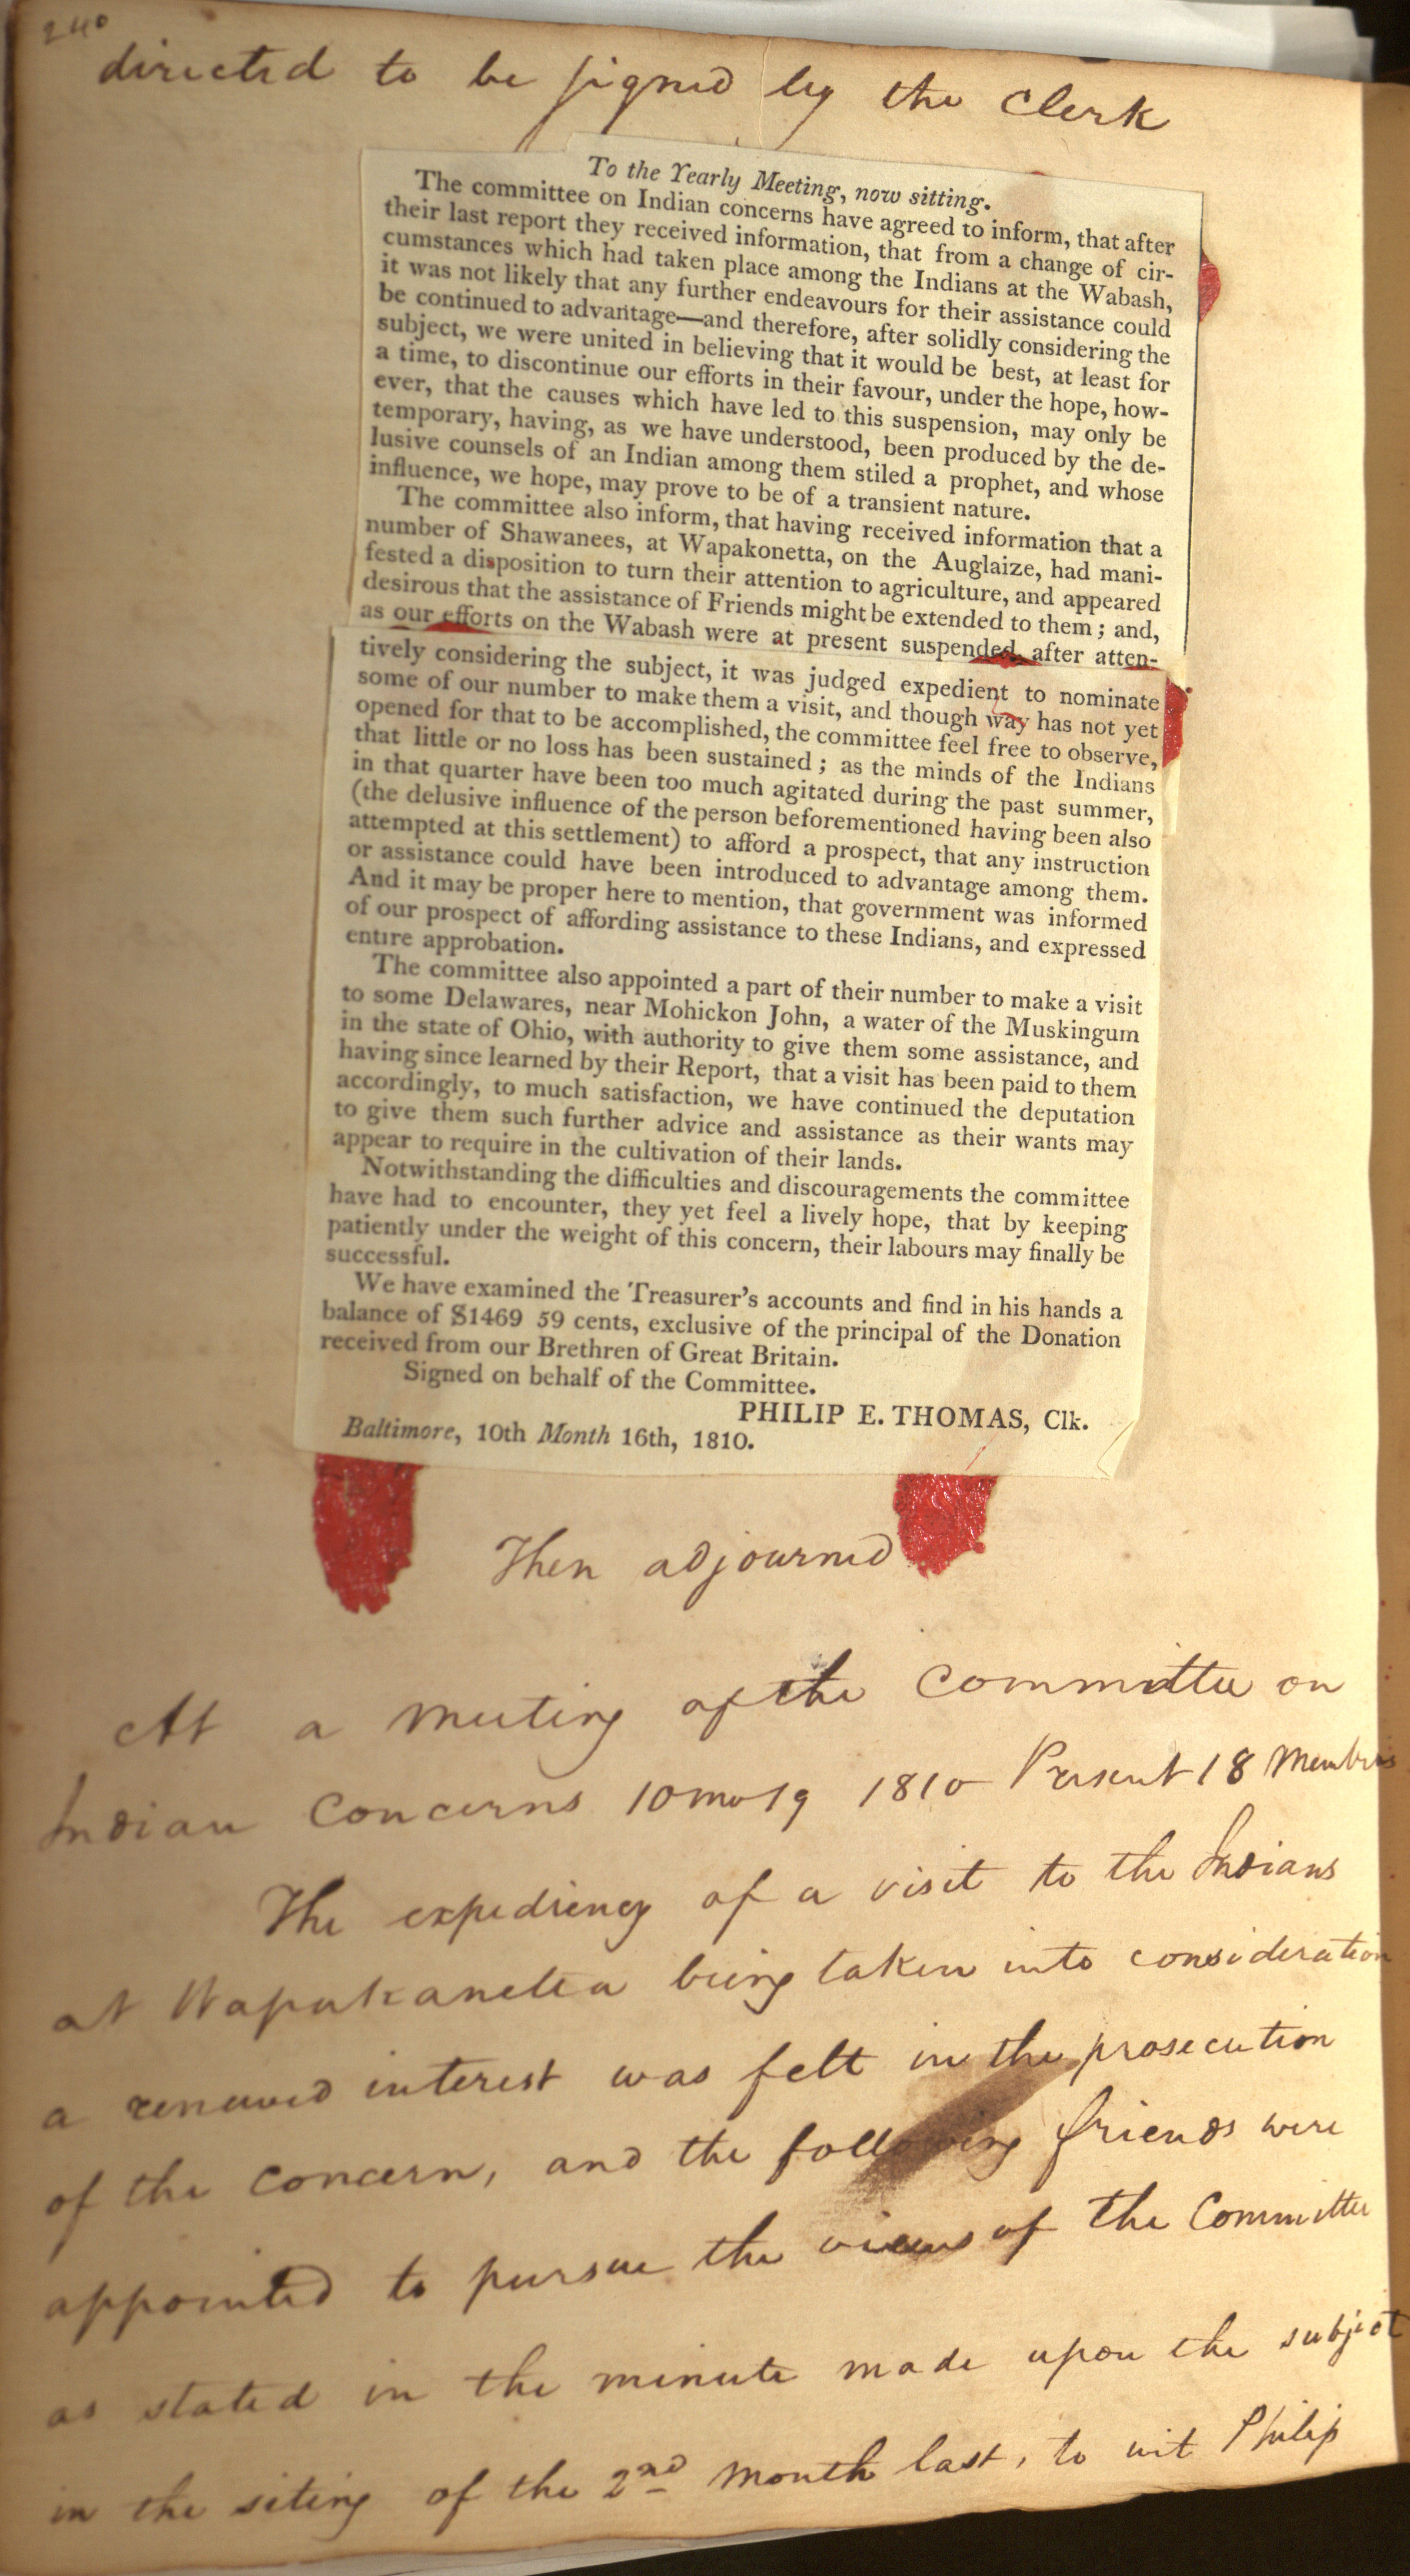 240
directed to be signed by the Clerk
To the Yearly Meeting, now sitting.
The committee on Indian concerns have agreed to inform, that after
their last report they received information, that from a change of cir-
cumstances which had taken place among the Indians at the Wabash,
it was not likely that any further endeavours for their assistance could
be continued to advantage—and therefore, after solidly considering the
subject, we were united in believing that it would be best, at least for
a time, to discontinue our efforts in their favour, under the hope, how-
ever, that the causes which have led to this suspension, may only be
temporary, having, as we have understood, been produced by the de-
lusive counsels of an Indian among them stiled a prophet, and whose
influence, we hope, may prove to be of a transient nature.
The committee also inform, that having received information that a
number of Shawanees, at Wapakonetta, on the Auglaize, had mani-
fested a disposition to turn their attention to agriculture, and appeared
desirous that the assistance of Friends might be extended to them; and,
as our efforts on the Wabash were at present suspended, after atten-
tively considering the subject, it was judged expedient to nominate
some of our number to make them a visit, and though way has not yet
opened for that to be accomplished, the committee feel free to observe,
that little or no loss has been sustained; as the minds of the Indians
in that quarter have been too much agitated during the past summer,
(the delusive influence of the person beforementioned having been also
attempted at this settlement) to afford a prospect, that any instruction
or assistance could have been introduced to advantage among them.
And it may be proper here to mention, that government was informed
of our prospect of affording assistance to these Indians, and expressed
entire approbation.
The committee also appointed a part of their number to make a visit
to some Delawares, near Mohickon John, a water of the Muskingum
in the state of Ohio, with authority to give them some assistance, and
having since learned by their Report, that a visit has been paid to them
accordingly, to much satisfaction, we have continued the deputation
to give them such further advice and assistance as their wants may
appear to require in the cultivation of their lands.
Notwithstanding the difficulties and discouragements the committee
have had to encounter, they yet feel a lively hope, that by keeping
patiently under the weight of this concern, their labours may finally be
successful.
We have examined the Treasurer's accounts and find in his hands a
balance of $1469 59 cents, exclusive of the principal of the Donation
received from our Brethren of Great Britain.
Signed on behalf of the Committee.
PHILIP E. THOMAS, Clk.
Baltimore, 10th Month 16th, 1810.
Then adjourned
At a meeting of the Committee on
Indian Concerns 10mo 19 1810 Present 18 Members
The expediency of a visit to the Indians
at Wapukanetta being taken into consideration
a renewed interest was felt in the prosecution
of the Concern, and the following friends were
appointed to pursue the views of the Committee
as stated in the minute made upon the subject
in the siting of the 2nd month last, to wit Philip